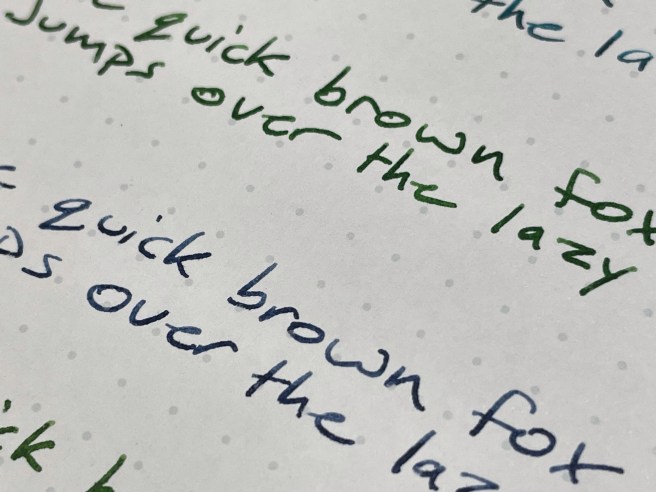 the la
quick brown fox
Jumps over the lazy
quick brown fox
ps over the laz
ck b